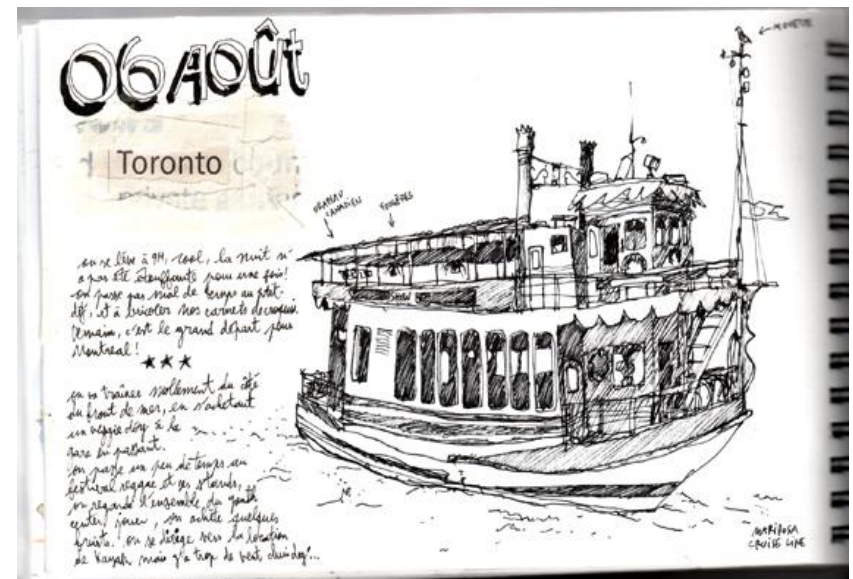 06 AOÛt
Toronto
MOUETTE
DRAPEAU
CANADIEN
FOUGÈRES
on se lève à 9H, cool, la nuit n'
a pas été étouffante pour une fois!
on passe pas mal de temps au ptit-
déj, et à bricoler nos carnets de croquis.
Demain, c'est le grand départ pour
Montreal!
on va traîner mollement du côté
du front de mer, en s'achetant
un veggie dog à la
gare en passant.
on passe un peu de temps au
festival reggae et ses stands,
on regarde l'ensemble du youth
center jouer, on achète quelques
fruits. on se dirige vers la location
de Kayak mais y'a trop de vent
MARIPOSA
CRUISE LINE